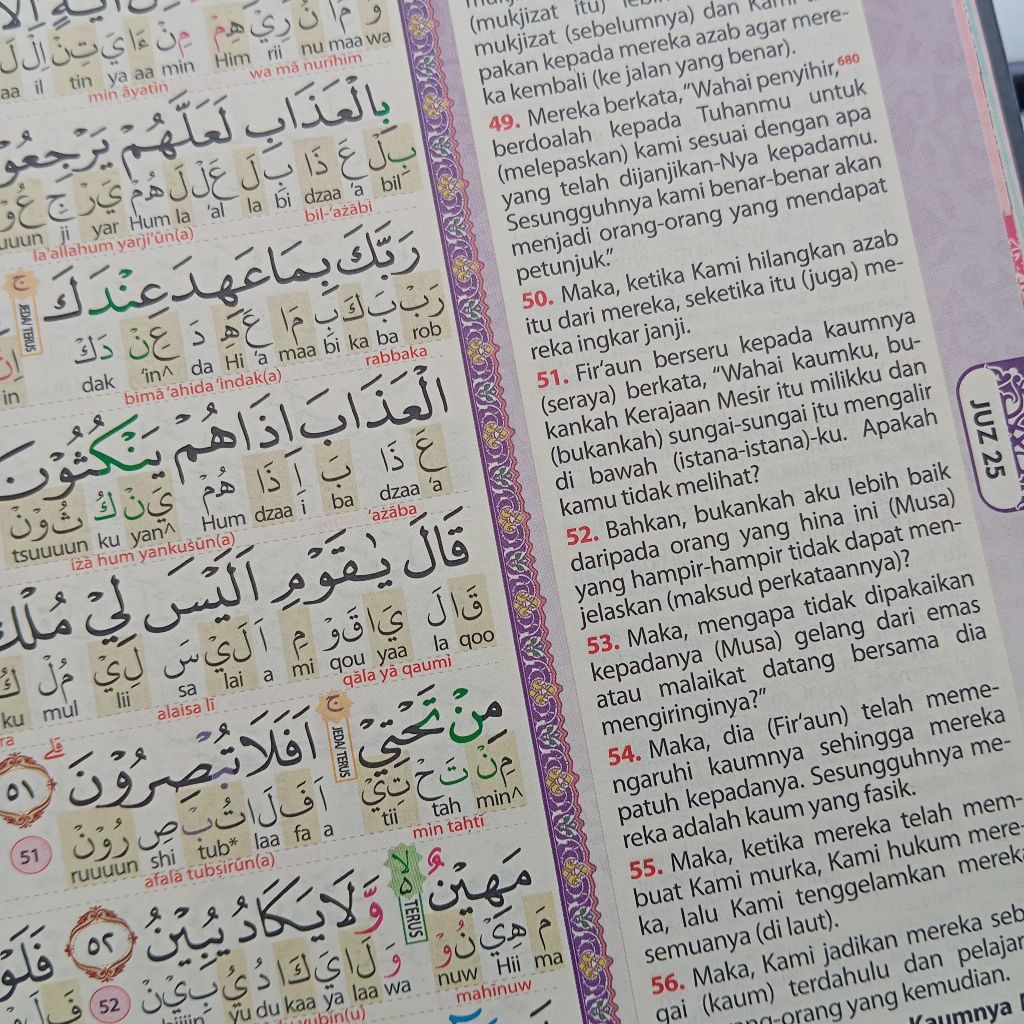 بِالْعَذَابِ لَعَلَّهُمْ يَرْجِعُو
بِلْ عَ ذَا بِ لَ عَلْ لَ هُمْ يَرْ جِ عُوْ
bil 'a dzaa bi la 'al la Hum yar ji uuun
bil-'ażābi la'allahum yarji'ūn(a)
رَبَّكَ بِمَا عَهِدَ عِنْدَكَ
رَبْ بَ كَ بِ مَا عَ هِ دَ عِنْ دَكْ
rob ba ka bi maa 'a Hi da 'in^ dak in
rabbaka bimā 'ahida 'indak(a)
JEDA/TERUS
الْعَذَابَ اِذَا هُمْ يَنْكُثُوْنَ
عَ ذَا بَ اِ ذَا هُمْ يَنْ كُ ثُوْنْ
'a dzaa ba i dzaa Hum yan^ ku tsuuuun
'ażāba iżā hum yankuṡūn(a)
قَالَ يٰقَوْمِ اَلَيْسَ لِيْ مُلْكُ
قَا لَ يَا قَوْ مِ اَ لَيْ سَ لِيْ مُلْ كُ
qoo la yaa qou mi a lai sa lii mul ku
qāla yā qaumi alaisa lī
مِنْ تَحْتِيْ ۚ اَفَلَا تُبْصِرُوْنَ ۗ ٥١
مِنْ تَحْ تِيْ اَ فَ لَا تُبْ صِ رُوْنْ
min^ tah tii a fa laa tub* shi ruuuun 51
min taḥtī afalā tubṣirūn(a)
JEDA/TERUS
مَهِيْنٌ ەۙ وَّلَا يَكَادُ يُبِيْنُ ٥٢ فَلَوْ
مَ هِيْ نُوْ وَ لَا يَ كَا دُ يُ بِيْنْ
ma Hii nuw wa laa ya kaa du yu 52
mahīnuw
TERUS
wa mā nurīhim min āyatin
wa maa nu rii Him min aa ya tin il
mukjizat (sebelumnya) dan Kami
pakan kepada mereka azab agar mere-
ka kembali (ke jalan yang benar).
49. Mereka berkata, “Wahai penyihir,680
berdoalah kepada Tuhanmu untuk
(melepaskan) kami sesuai dengan apa
yang telah dijanjikan-Nya kepadamu.
Sesungguhnya kami benar-benar akan
menjadi orang-orang yang mendapat
petunjuk.”
50. Maka, ketika Kami hilangkan azab
itu dari mereka, seketika itu (juga) me-
reka ingkar janji.
51. Fir‘aun berseru kepada kaumnya
(seraya) berkata, “Wahai kaumku, bu-
kankah Kerajaan Mesir itu milikku dan
(bukankah) sungai-sungai itu mengalir
di bawah (istana-istana)-ku. Apakah
kamu tidak melihat?
52. Bahkan, bukankah aku lebih baik
daripada orang yang hina ini (Musa)
yang hampir-hampir tidak dapat men-
jelaskan (maksud perkataannya)?
53. Maka, mengapa tidak dipakaikan
kepadanya (Musa) gelang dari emas
atau malaikat datang bersama dia
mengiringinya?”
54. Maka, dia (Fir‘aun) telah meme-
ngaruhi kaumnya sehingga mereka
patuh kepadanya. Sesungguhnya me-
reka adalah kaum yang fasik.
55. Maka, ketika mereka telah mem-
buat Kami murka, Kami hukum mere-
ka, lalu Kami tenggelamkan mereka
semuanya (di laut).
56. Maka, Kami jadikan mereka seb
gai (kaum) terdahulu dan pelajar
orang yang kemudian.
Kaumnya
JUZ 25